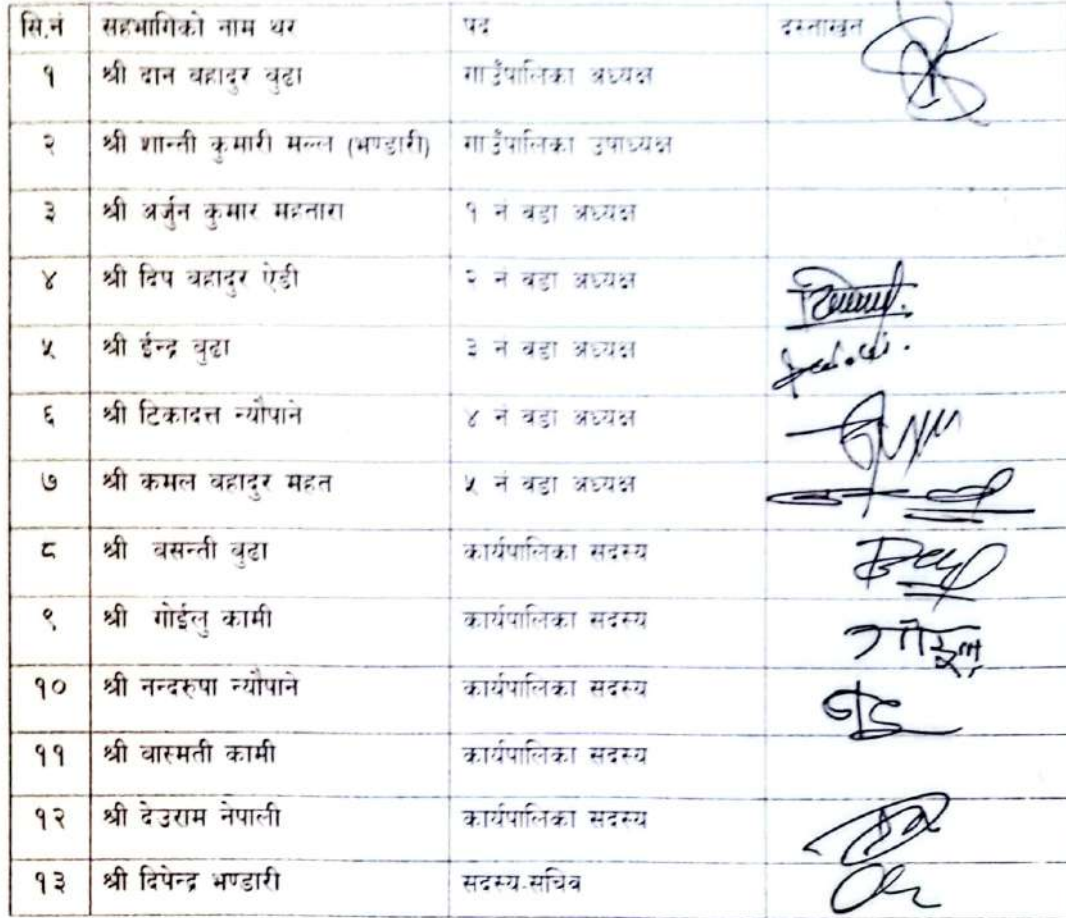 सि.नं सहभागिको नाम थर पद दस्ताखत
१ श्री दान बहादुर बुढा गाउँपालिका अध्यक्ष
२ श्री शान्ती कुमारी मल्ल (भण्डारी) गाउँपालिका उपाध्यक्ष
३ श्री अर्जुन कुमार महतारा १ नं वडा अध्यक्ष
४ श्री दिप बहादुर ऐडी २ नं वडा अध्यक्ष
५ श्री ईन्द्र बुढा ३ नं वडा अध्यक्ष
६ श्री टिकादत्त न्यौपाने ४ नं वडा अध्यक्ष
७ श्री कमल बहादुर महत ५ नं वडा अध्यक्ष
८ श्री बसन्ती बुढा कार्यपालिका सदस्य
९ श्री गोईलु कामी कार्यपालिका सदस्य
१० श्री नन्दरुपा न्यौपाने कार्यपालिका सदस्य
११ श्री वास्मती कामी कार्यपालिका सदस्य
१२ श्री देउराम नेपाली कार्यपालिका सदस्य
१३ श्री दिपेन्द्र भण्डारी सदस्य-सचिव